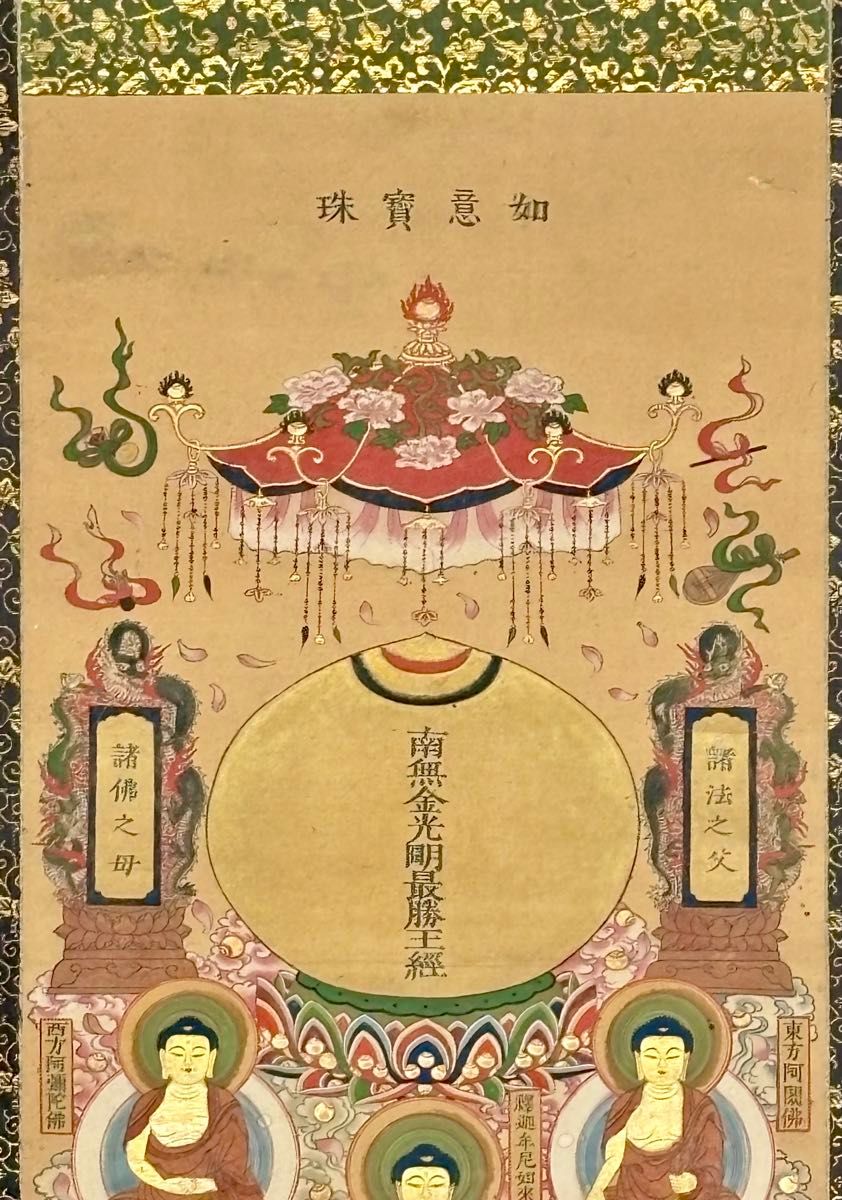 如意寳珠
南無金光明最勝王經
諸法之父
諸佛之母
東方阿閦佛
釋迦牟尼如來
西方阿彌陀佛